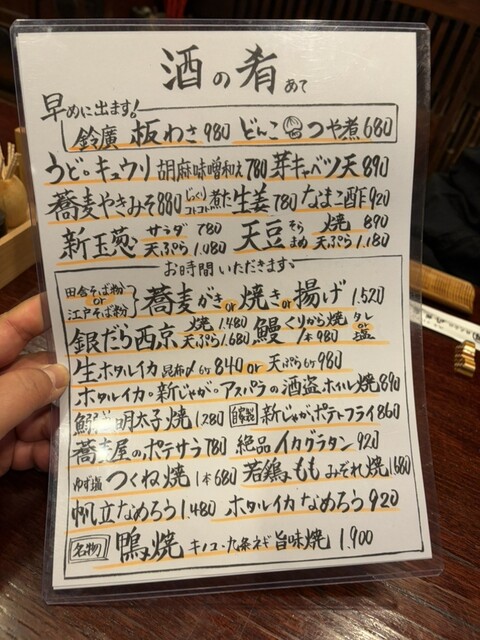 酒の肴 あて
早めに出ます!
鈴廣 板わさ 980 どんこ つや煮 680
うど。キュウリ 胡麻味噌和え 780 芽キャベツ天 890
蕎麦やきみそ 880 じっくりコトコト煮た 生姜 780 なまこ酢 920
新玉葱 サラダ 780 天ぷら 1.080 天豆 そらまめ 焼 890 天ぷら 1.180
お時間いただきます
田舎そば粉 or 江戸そば粉 蕎麦がき or 焼き or 揚げ 1.520
銀だら西京 焼 1.480 天ぷら 1.680 鰻 くりから焼 タレ or 塩 1本 980
生ホタルイカ 昆布〆 6ヶ 840 or 天ぷら 6ヶ 980
ホタルイカ。新じゃが。アスパラの酒盗ホイル焼 890
明太子焼 1280 自家製 新じゃがポテトフライ 860
蕎麦屋のポテサラ 780 絶品 イカグラタン 920
ゆず塩 つくね焼 1本 680 若鶏もも みぞれ焼 1680
帆立なめろう 1.480 ホタルイカなめろう 920
名物 鴨焼 キノコ・九条ネギ 旨味焼 1.900